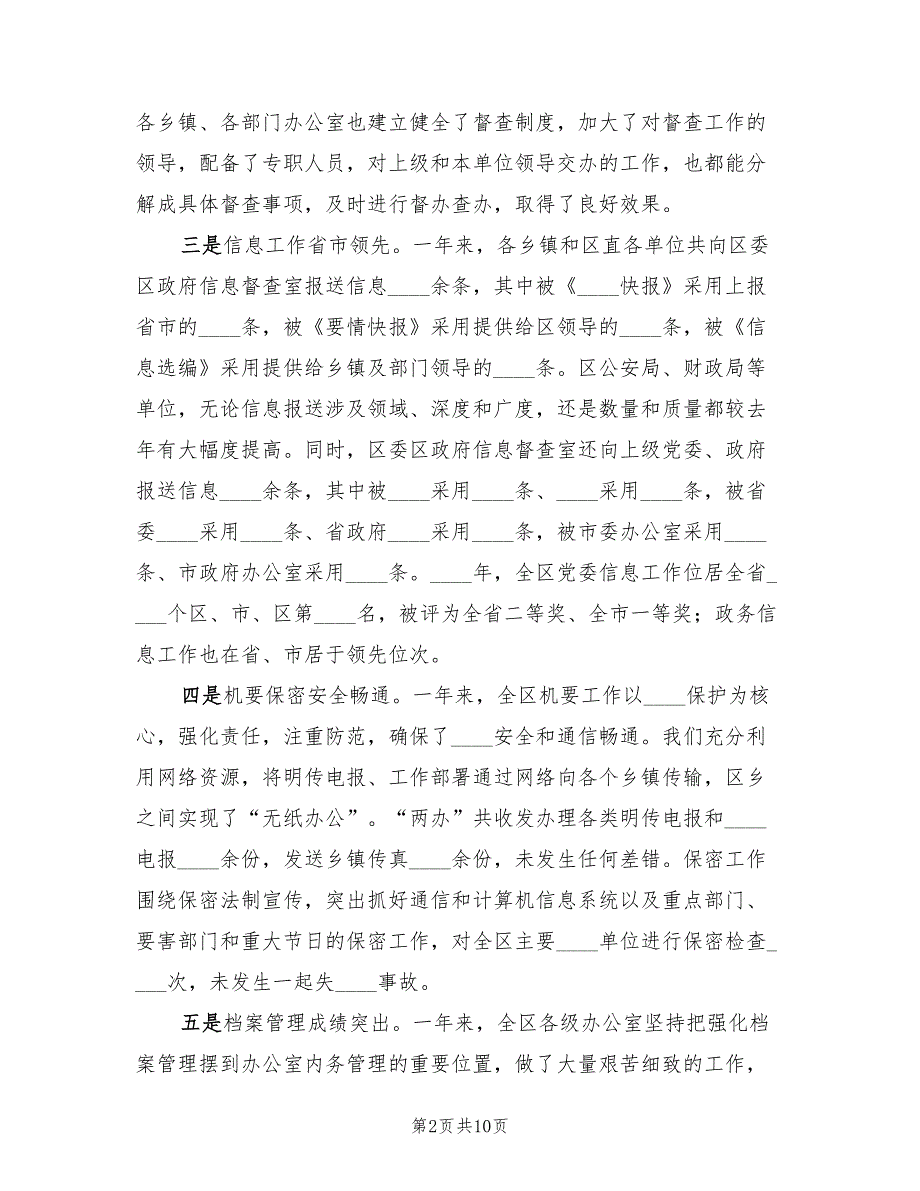 各乡镇、各部门办公室也建立健全了督查制度，加大了对督查工作的
领导，配备了专职人员，对上级和本单位领导交办的工作，也都能分
解成具体督查事项，及时进行督办查办，取得了良好效果。
三是信息工作省市领先。一年来，各乡镇和区直各单位共向区委
区政府信息督查室报送信息____余条，其中被《____快报》采用上报
省市的____条，被《要情快报》采用提供给区领导的____条，被《信
息选编》采用提供给乡镇及部门领导的____条。区公安局、财政局等
单位，无论信息报送涉及领域、深度和广度，还是数量和质量都较去
年有大幅度提高。同时，区委区政府信息督查室还向上级党委、政府
报送信息____余条，其中被____采用____条、____采用____条，被省
委____采用____条、省政府____采用____条，被市委办公室采用____
条、市政府办公室采用____条。____年，全区党委信息工作位居全省_
___个区、市、区第____名，被评为全省二等奖、全市一等奖；政务信
息工作也在省、市居于领先位次。
四是机要保密安全畅通。一年来，全区机要工作以____保护为核
心，强化责任，注重防范，确保了____安全和通信畅通。我们充分利
用网络资源，将明传电报、工作部署通过网络向各个乡镇传输，区乡
之间实现了“无纸办公”。“两办”共收发办理各类明传电报和____
电报____余份，发送乡镇传真____余份，未发生任何差错。保密工作
围绕保密法制宣传，突出抓好通信和计算机信息系统以及重点部门、
要害部门和重大节日的保密工作，对全区主要____单位进行保密检查_
___次，未发生一起失____事故。
五是档案管理成绩突出。一年来，全区各级办公室坚持把强化档
案管理摆到办公室内务管理的重要位置，做了大量艰苦细致的工作，
第2页共10页